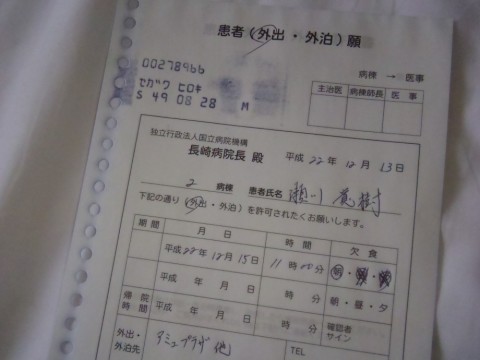 患者（外出・外泊）願
病棟 → 医事
00278966
セガワ ヒロキ
S 49 08 28 M
主治医 病棟師長 医事
独立行政法人国立病院機構
長崎病院長 殿 平成 22年 12月 13日
2 病棟 患者氏名 瀬川 樹
下記の通り（外出・外泊）を許可されたくお願いします。
期間 月日 時間 欠食
平成22年12月15日 11時00分 朝・昼・夕
平成 年 月 日 時 分 朝・昼・夕
帰院時間 平成 年 月 日 時 分 確認者サイン
外出・外泊先 アミュプラザ 他 TEL